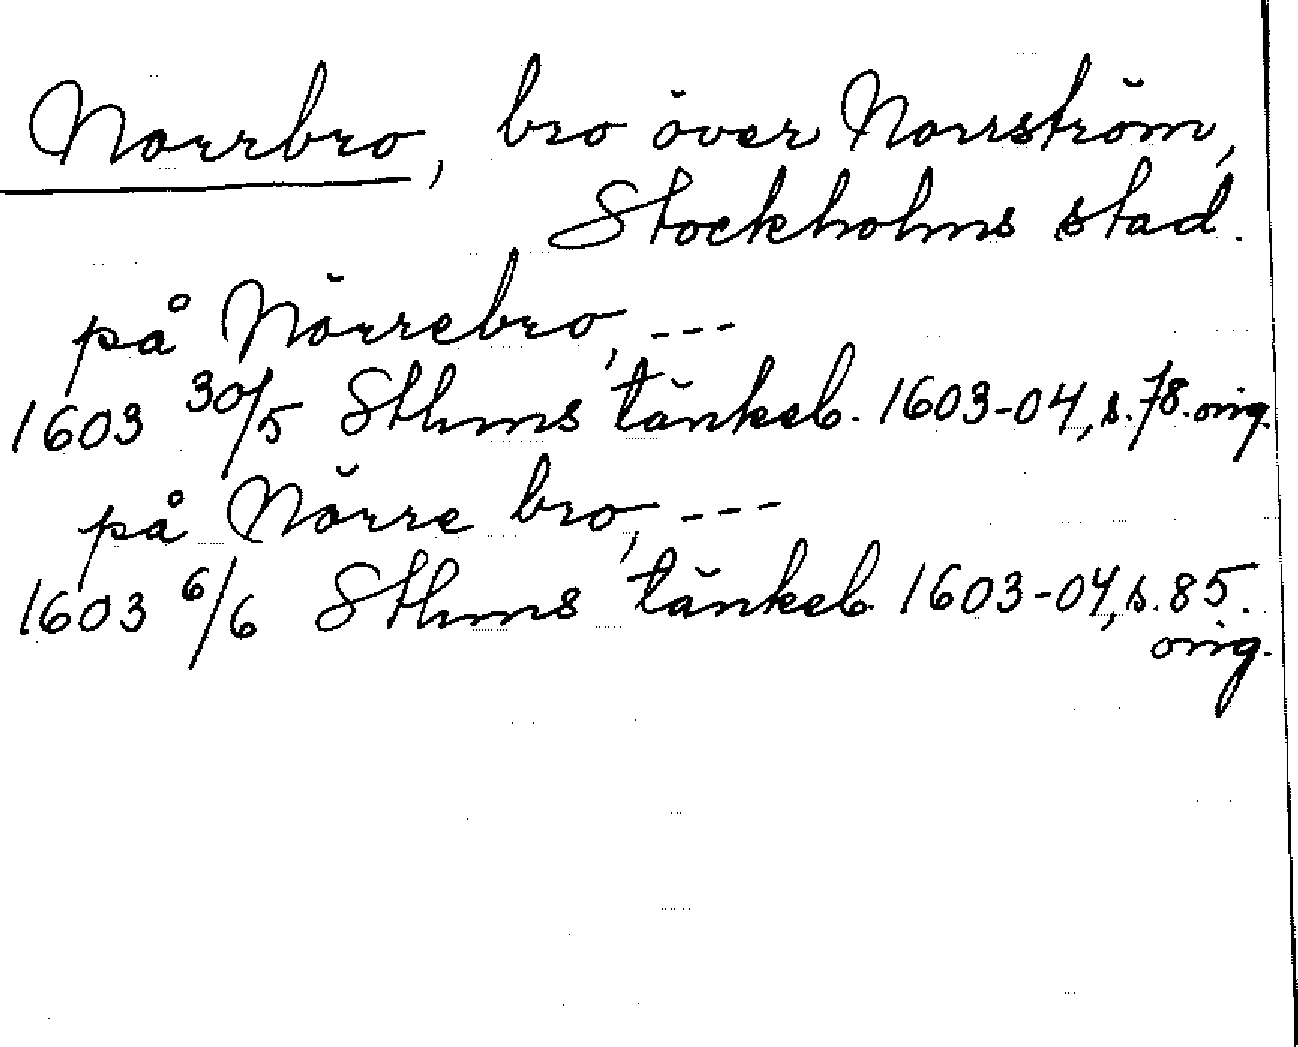 Norrbro, bro över Norrström,
Stockholms stad.
på Nörrebro, ---
1603 30/5 Sthms tänkeb. 1603-04, s. 78. orig.
på Nörre bro, ---
1603 6/6 Sthms tänkeb. 1603-04, s. 85.
orig.